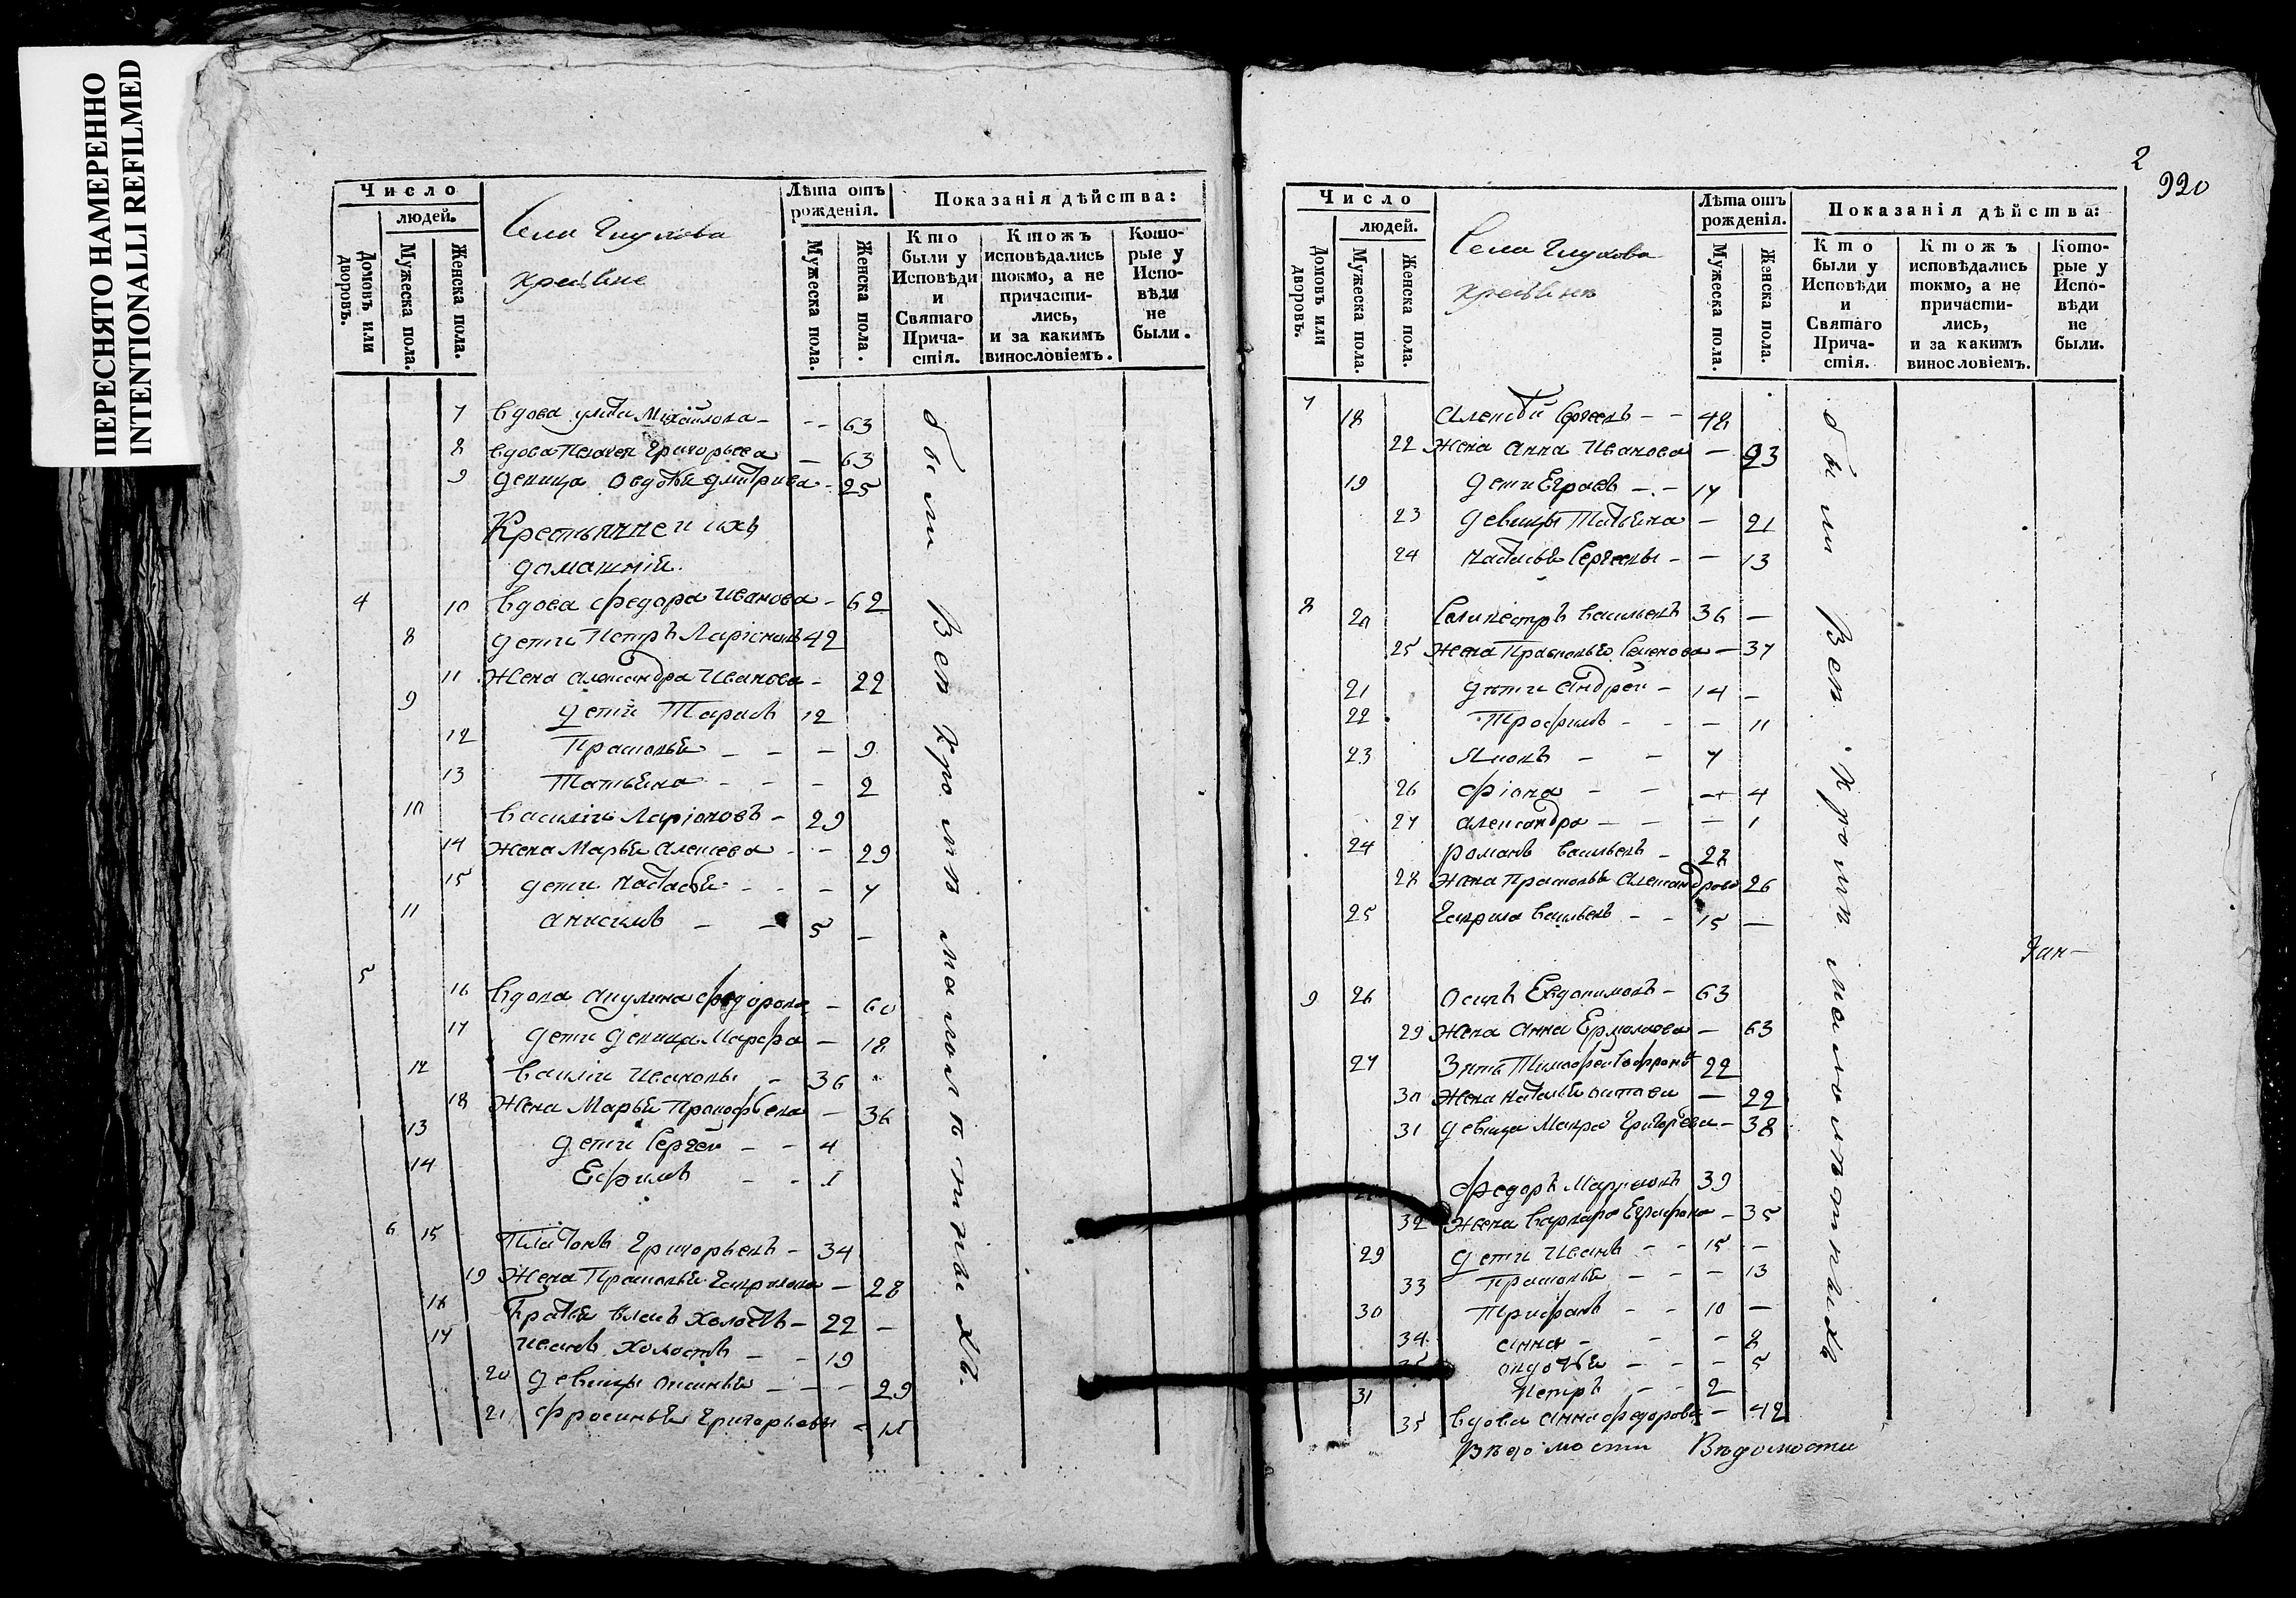 ПЕРЕСНЯТО НАМЕРЕННО
INTENTIONALLI REFILMED
Число
людей.
Домовъ или дворовъ.
Мужеска пола.
Женска пола.
Села Глухова
Лѣта отъ рожденія.
Мужеска пола.
Женска пола.
Показанія дѣйства:
Кто были у Исповѣди и Святаго Прича- стія.
Ктожъ исповѣдались токмо, а не причасти- лись, и за какимъ винословіемъ.
Кото- рые у Испо- вѣди не были.
7 Вдова Михайлова - - - 63
8 вдова Григорьева - 63
9 девица - 25
Крестьяне и ихъ
домашніи.
4 10 Вдова Федора Иванова - 62
8 дети Петръ Ларіоновъ 42
11 Жена Александра Иванова - 22
9 дети Тарасъ 12
12 Прасковьи - - - 9
13 Татьяна - - - 2
10 Василіи Ларіоновъ - 29
14 Жена Марьи Алексева - - 29
15 дети Настасьи - - - 7
11 Анисимъ - - 5 -
5 16 Вдова Акулина Федорова - 60
17 дети девица Марфа - 18
12 Василіи Ивановъ - 36
18 Жена Марьи Прокофьева - 36
13 дети Сергеи - - 4
14 Ефимъ - - 1
6 15 Платонъ Григорьевъ - 34
19 Жена Прасковьи Гаврилова - 28
16 Братьи Власъ Холостъ - 22 -
17 Иванъ Холостъ - - 19
20 девицы - - - 29
21 Фросиньи Григорьевы - 15
были Вси Кроме малолетныхъ.
2
920
Число
людей.
Домовъ или дворовъ.
Мужеска пола.
Женска пола.
Села Глухова
Лѣта отъ рожденія.
Мужеска пола.
Женска пола.
Показанія дѣйства:
Кто были у Исповѣди и Святаго Прича- стія.
Ктожъ исповѣдались токмо, а не причасти- лись, и за какимъ винословіемъ.
Кото- рые у Испо- вѣди не были.
7 18 Алексеи Сергеевъ - - 48
22 Жена Анна Иванова -
19 дети - - 17
23 девицы Татьяна - 21
24 Настасьи Сергеевы - - 13
8 20 Селиместръ Васильевъ 36 -
25 Жена Прасковьи Семенова - 37
21 дети Андреи - 14 -
22 Трофимъ - - - 11
23 - - 7
26 Фіона - - - 4
27 Александра - - - 1
24 Романъ Васильевъ - 28
28 Жена Прасковьи Александрова 26
25 Гаврила Васильевъ - - 15 -
9 26 Осипъ Евдокимовъ - 63
29 Жена Анна Ермолаева - 63
27 Зять Тимофеи 22
30 Жена Наталья - 22
31 девица Григорьева - 38
Федоръ 39
32 Жена Варвара - 35
29 дети Иванъ - - 15 -
33 Прасковьи - - - 13
30 Трифанъ - - 10 -
34 Анна - - - 8
Авдотьи - - - 5
31 Петръ - - 2
35 Вдова Анна Федорова - 42
Вѣдомости Вѣдомости
были Вси Кроме малолетныхъ